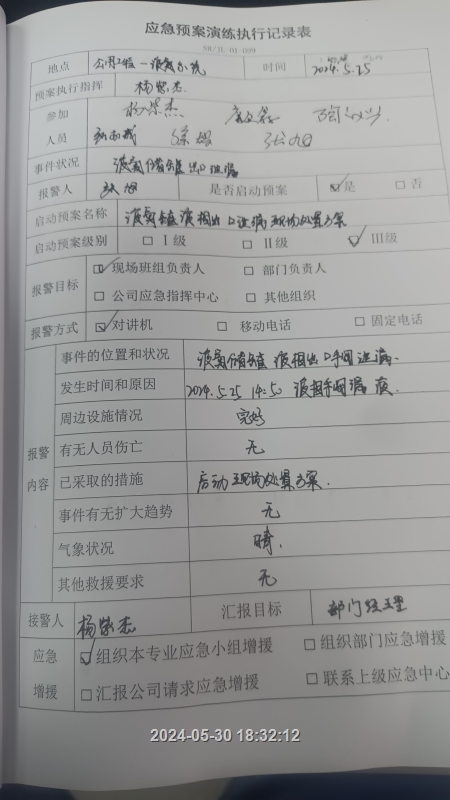 应急预案演练执行记录表
地点 公用工程一液氮系统 时间 2024.5.25
预案执行指挥
参加
人员
事件状况 液氮储罐出口泄漏
报警人 是否启动预案 ☑是 □否
启动预案名称 液氮储罐液相出口泄漏现场处置方案
启动预案级别 □Ⅰ级 □Ⅱ级 ☑Ⅲ级
报警目标 ☑现场班组负责人 □部门负责人
□公司应急指挥中心 □其他组织
报警方式 ☑对讲机 □移动电话 □固定电话
报警
内容
事件的位置和状况 液氮储罐液相出口手阀泄漏.
发生时间和原因 2024.5.25 14:50 液相手阀漏液.
周边设施情况 完好
有无人员伤亡 无
已采取的措施 启动现场处置方案.
事件有无扩大趋势 无
气象状况 晴.
其他救援要求 无
接警人 汇报目标 部门经理
应急
增援
☑组织本专业应急小组增援 □组织部门应急增援
□汇报公司请求应急增援 □联系上级应急中心
2024-05-30 18:32:12